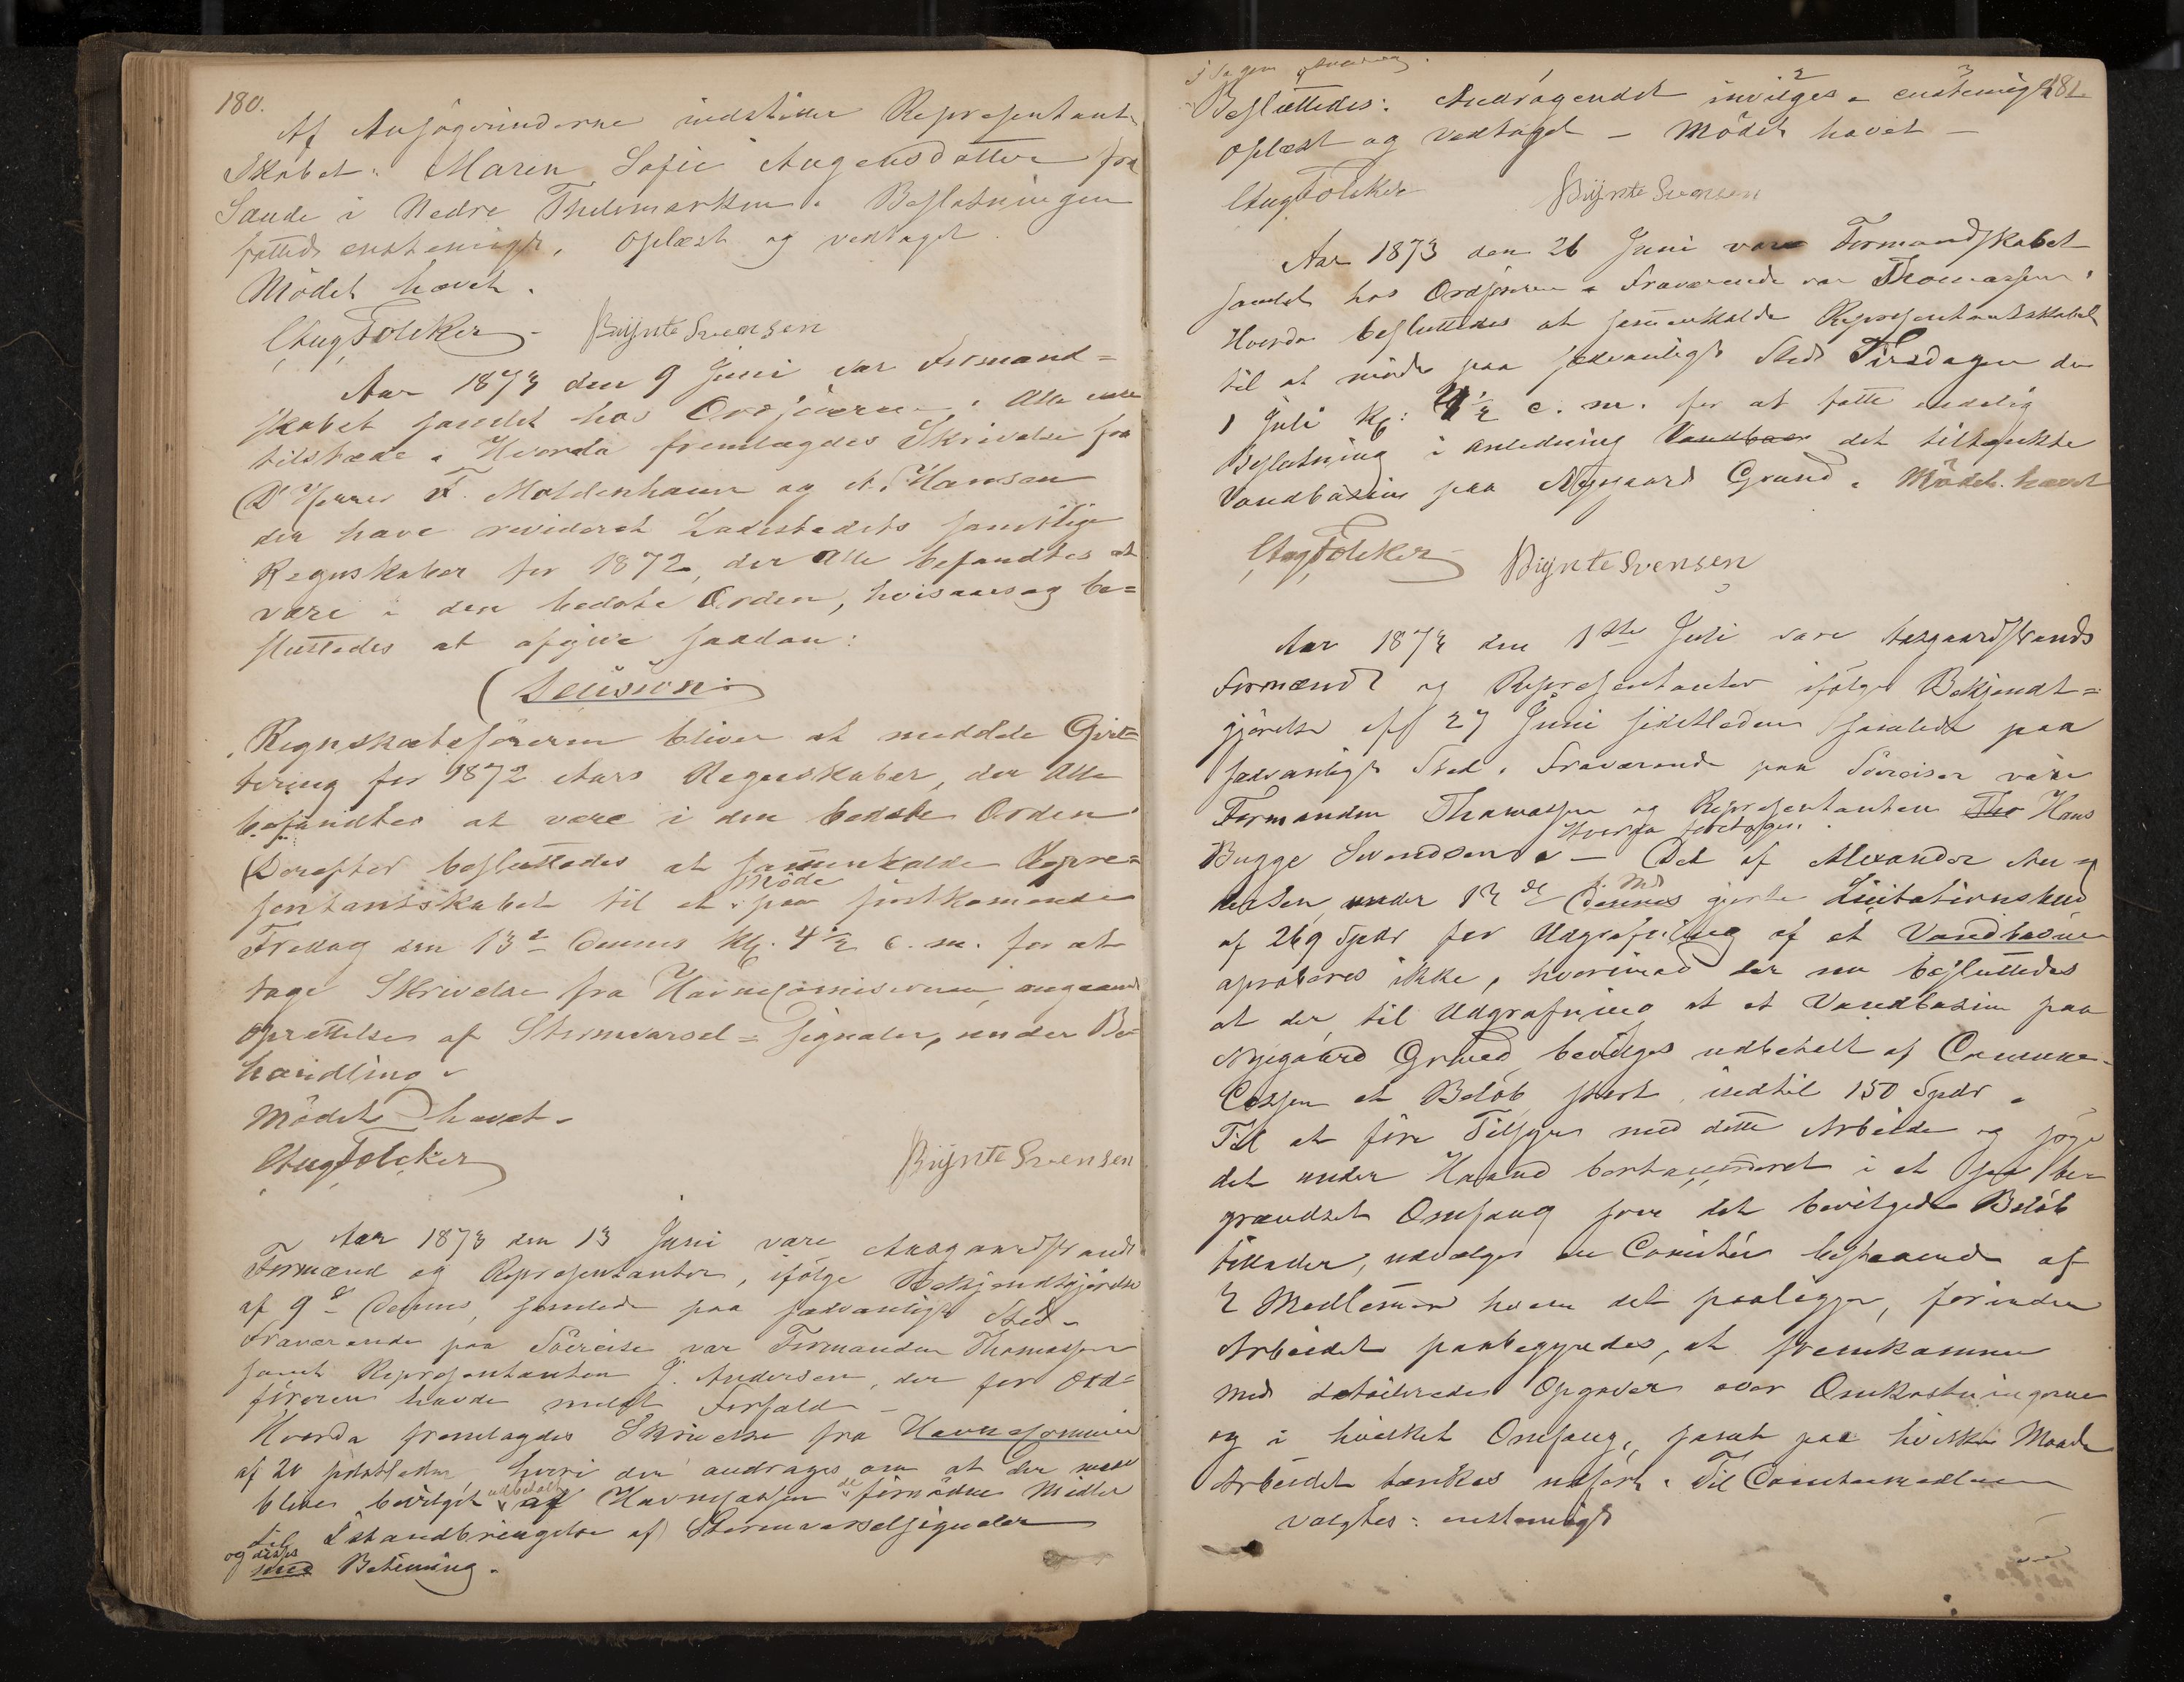 180.
Af Ansøgerinderne indstiller Repræsentant-
skabet: Maren Sofie Aagensdatter fra
Saude i Nedre Thelemarken. Beslutningen
fattedes enstemigt, oplæst og vedtaget.
Mødet hævet.
Aug Folcker - Brynte Svensen
Aar 1873 den 9 Juni var Formand=
skabet samlet hos Ordføreren. Alle vare
tilstæde. Hvorda fremlagdes Skrivelse fra
D'Herrer F. Moldenhauer og A. Hansen
der have revideret Ladestedets samtlige
Regnskaber for 1872, der alle befandtes at
være i den bedste Orden, hvisaarsag be=
sluttedes at afgive saadan:
Decision:
Regnskabsføreren bliver at meddele Qvit=
tering for 1872 Aars Regnskaber, der Alle
befandtes at være i den bedste Orden.
Derefter besluttedes at sammenkalde Repre=
sentantskabet til et Møde paa førstkomende
Fredag den 13de Dennes Kl. 4 1/2 e. m. for at
tage Skrivelse fra Havnecomisionen, angaaende
oprettelse af Stormvarsel=Signaler, under Be-
handling.
Mødet hævet.
Aug Folcker Brynte Svensen
Aar 1873 den 13 Juni vare Aasgaardstrands
Formænd og Repræsentanter, ifølge Bekjendtgjørelse
af 9de Dennes, samlede paa sædvanligt Sted.
Fraværende paa Søreise var Formanden Thomassen
samt Repræsentanten J. Andersen, der for Ord=
føreren havde meldt Forfald -
Hvorda fremlagdes Skrivelse fra Havnecomision
af 20 sidstleden, hvori der andrages om at der maa
blive bevilget udbetalt af Havnecassen de fornødne Midler
til Istandbringelse af Stormvarselsignaler
og disses Betjening.
i Sagens
Besluttedes: Andragendet invilges - enstemigt 181.
Oplæst og vedtaget - Mødet hævet -
Aug Folcker Brynte Svensen
Aar 1873 den 26 Juni var Formandskabet
samlet hos Ordføreren. Fraværende var Thomassen.
Hvorda besluttedes at sammenkalde Repræsentantskabet
til at møde paa sædvanligt Sted Tirsdagen den
1 Juli Kl: 4 1/2 e. m. for at fatte endelig
Beslutning i anledning Vandbas det tiltænkte
Vandbasin paa Nygaard Grund. Mødet hævet
Aug Folcker - Brynte Svensen
Aar 1873 den 1ste Juli vare Aasgaardstrands
Formænd og Repræsentanter ifølge Bekjendt=
gjørelse af 27 Juni sidstleden samlede paa
sædvanligt Sted. Fraværende paa Søreiser vare
Formanden Thomassen og Repræsentanten Hans
Bugge Svendsen. - Hvorda foretoges: Det af Alexander An-
dersen, under 13de f. Md. Dennes gjorte Licitationsbud
af 269 Spdr for Udgrafning af et Vandbasin
aproberes ikke, hvorimod der nu besluttedes
at der til Udgrafning at et Vandbasin paa
Nygaard Grund, bevilges udbetalt af Commune-
Cassen et Beløb stort indtil 150 Spdr.
Til at føre Tilsyn med dette Arbeide og søge
det under Haand bortaccorderet i et saa be-
grændset Omfang som det bevilgede Beløb
tillader, udvælges en Comitée bestaaende af
3 Medlemmer hvem det paaligger, forinden
Arbeidet paabegyndes, at fremkomme
med detailerede Opgaver over Omkostningerne
og i hvilket Omfang, samt paa hvilken Maade
Arbeidet tænkes udført. Til Comitemedlemmer
valgtes: enstemigt